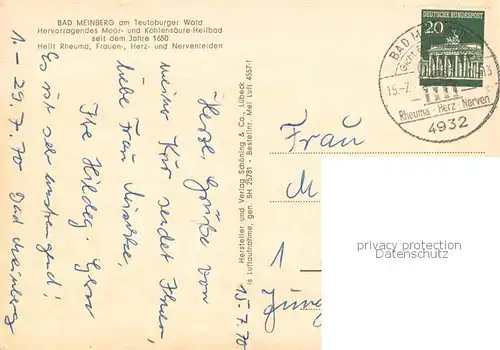 BAD MEINBERG am Teutoburger Wald
Hervorragendes Moor- und Kohlensäure-Heilbad
seit dem Jahre 1650
Heilt Rheuma, Frauen-, Herz- und Nervenleiden
1. - 29. 7. 70 Bad Meinberg
Es ist sehr anstrengend!
Herzl. Grüße von
meiner Kur sendet Ihnen,
liebe Frau
Ihre Hildeg.
15. 7. 70
Hersteller und Verlag Schöning & Co., Lübeck
SH 25781 - Bestellnr. Mei Luft 4557-f
is Luftaufnahme, gen.
DEUTSCHE BUNDESPOST
20
BAD M
15.-7.
Rheuma · Herz · Nerven
4932
Frau
M
1
privacy protection
Datenschutz